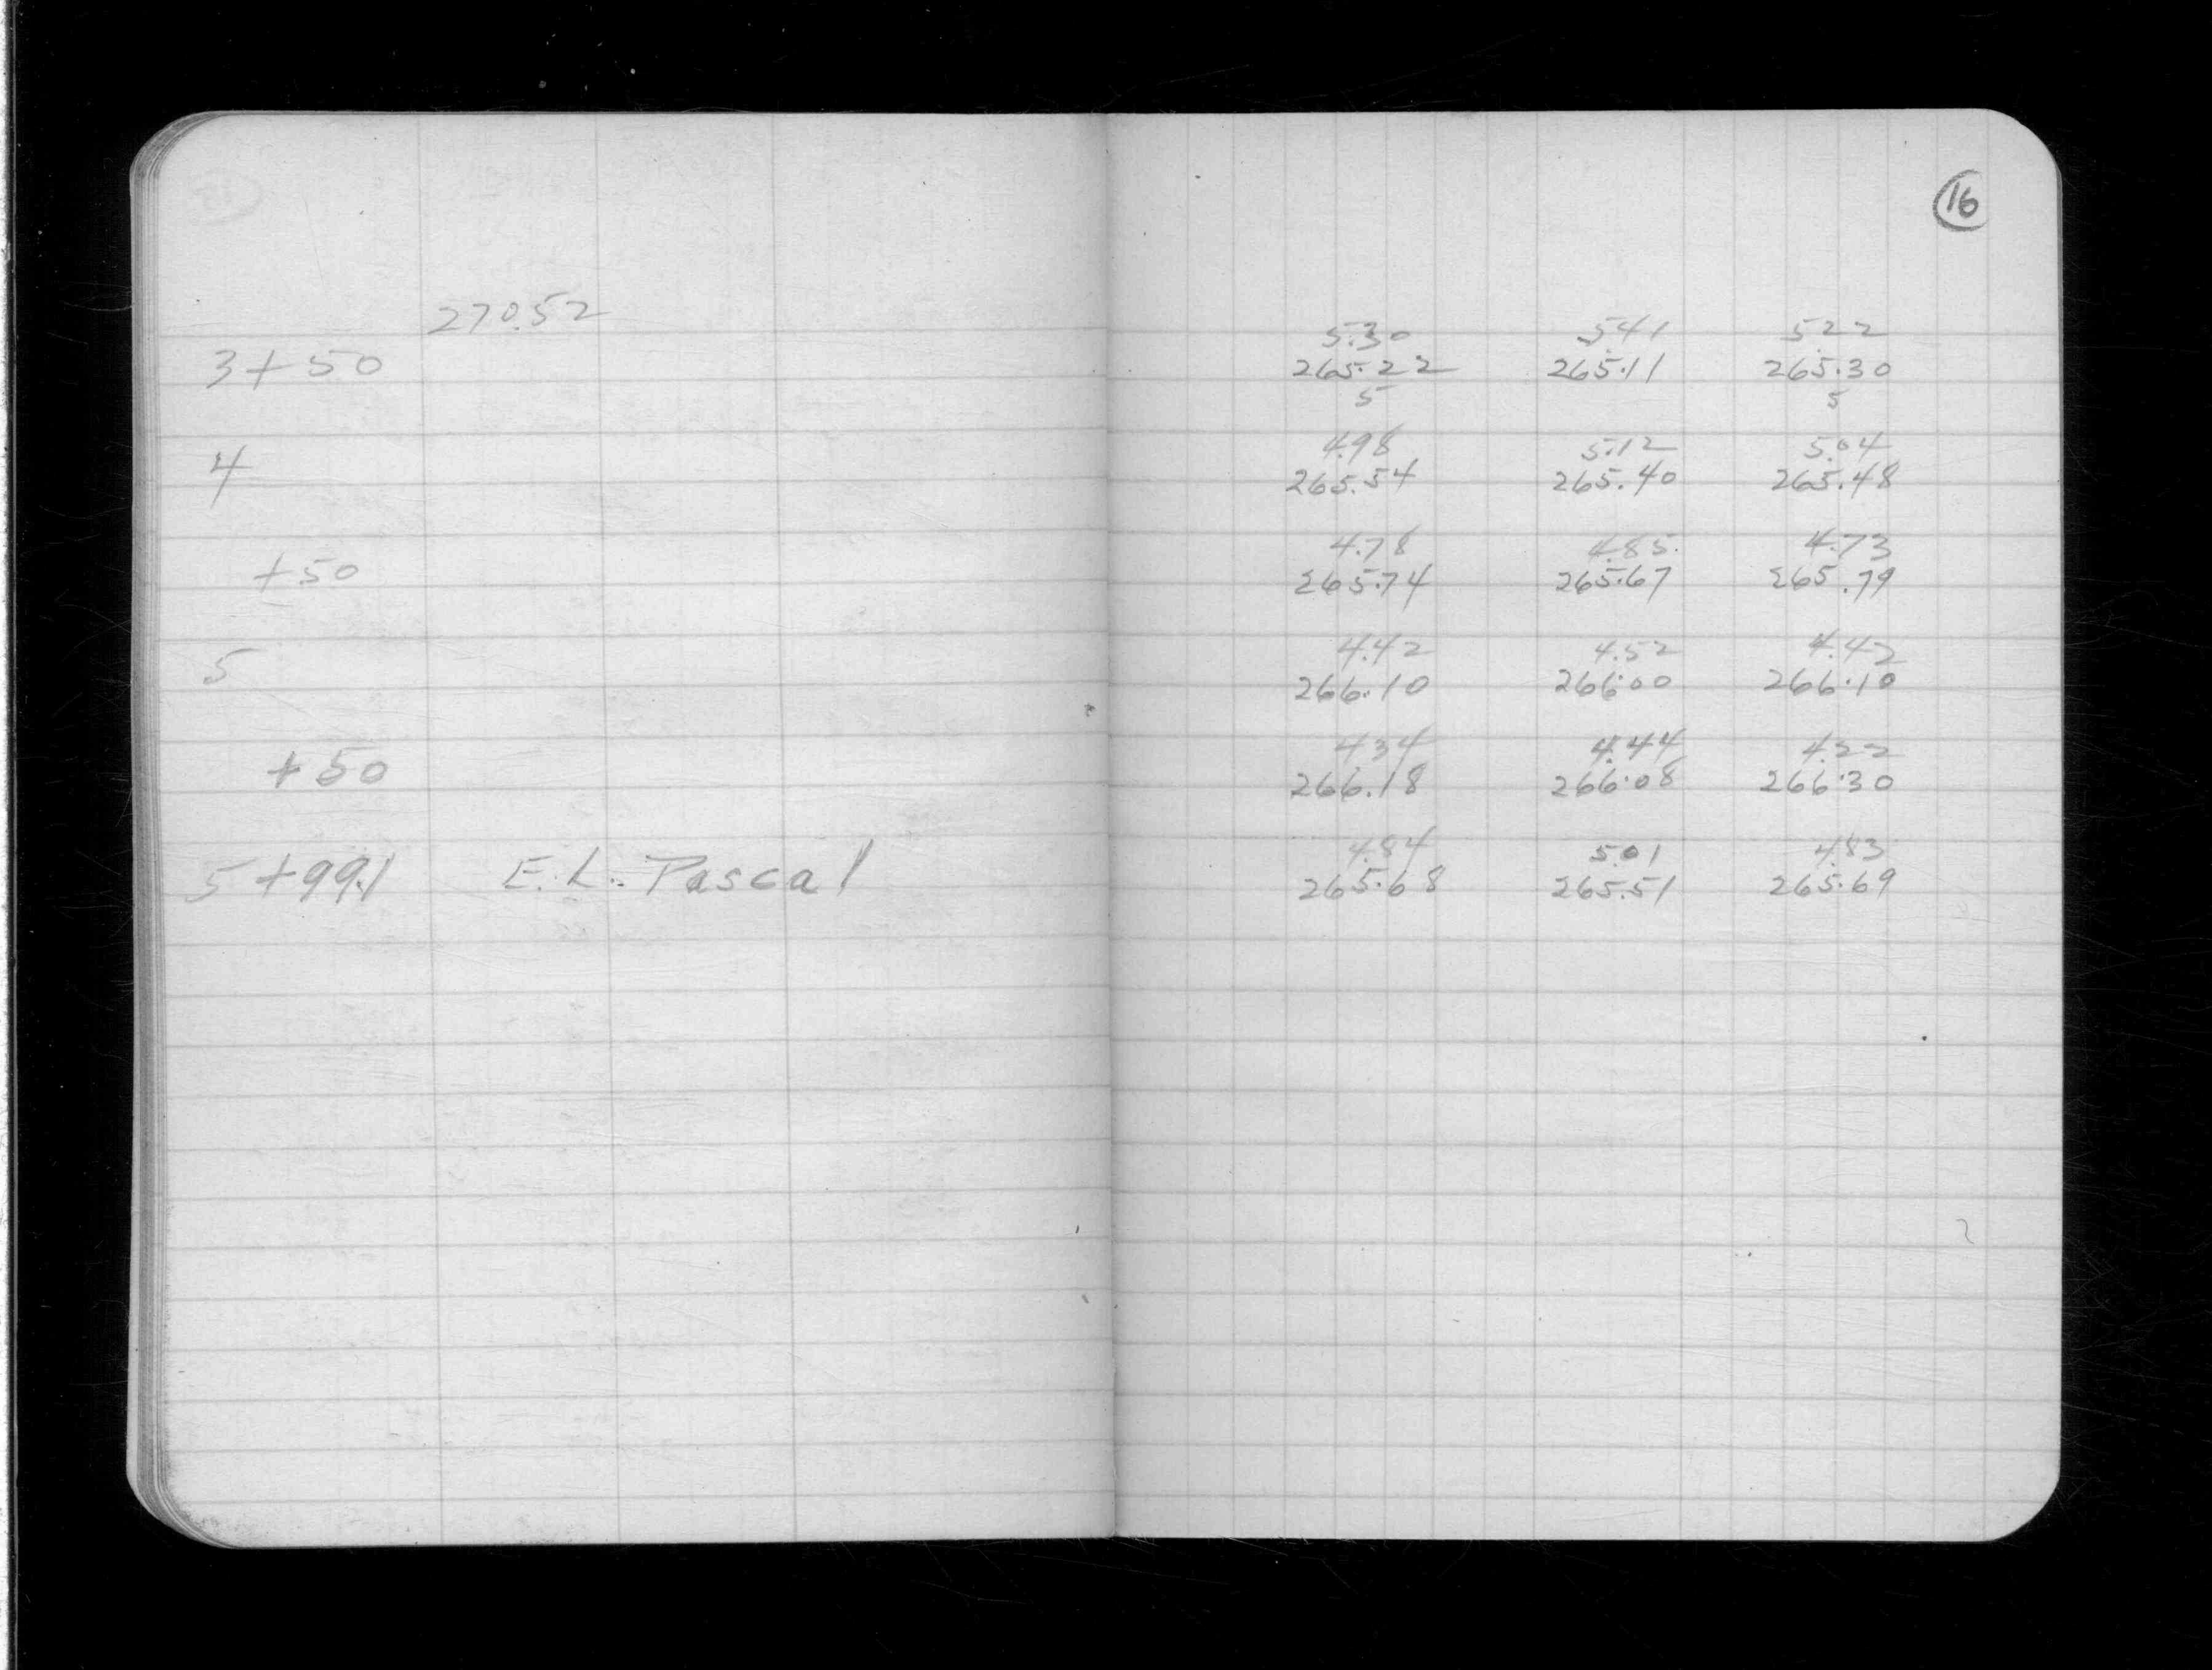 16
270.52
5.30 5.41 5.22
3+50 265.22 265.11 265.30
5 5
4.98 5.12 5.04
4 265.54 265.40 265.48
4.78 4.85 4.73
+50 265.74 265.67 265.79
4.42 4.52 4.42
5 266.10 266.00 266.10
4.34 4.44 4.22
+50 266.18 266.08 266.30
4.84 5.01 4.83
5+99.1 E.L. Pascal 265.68 265.51 265.69